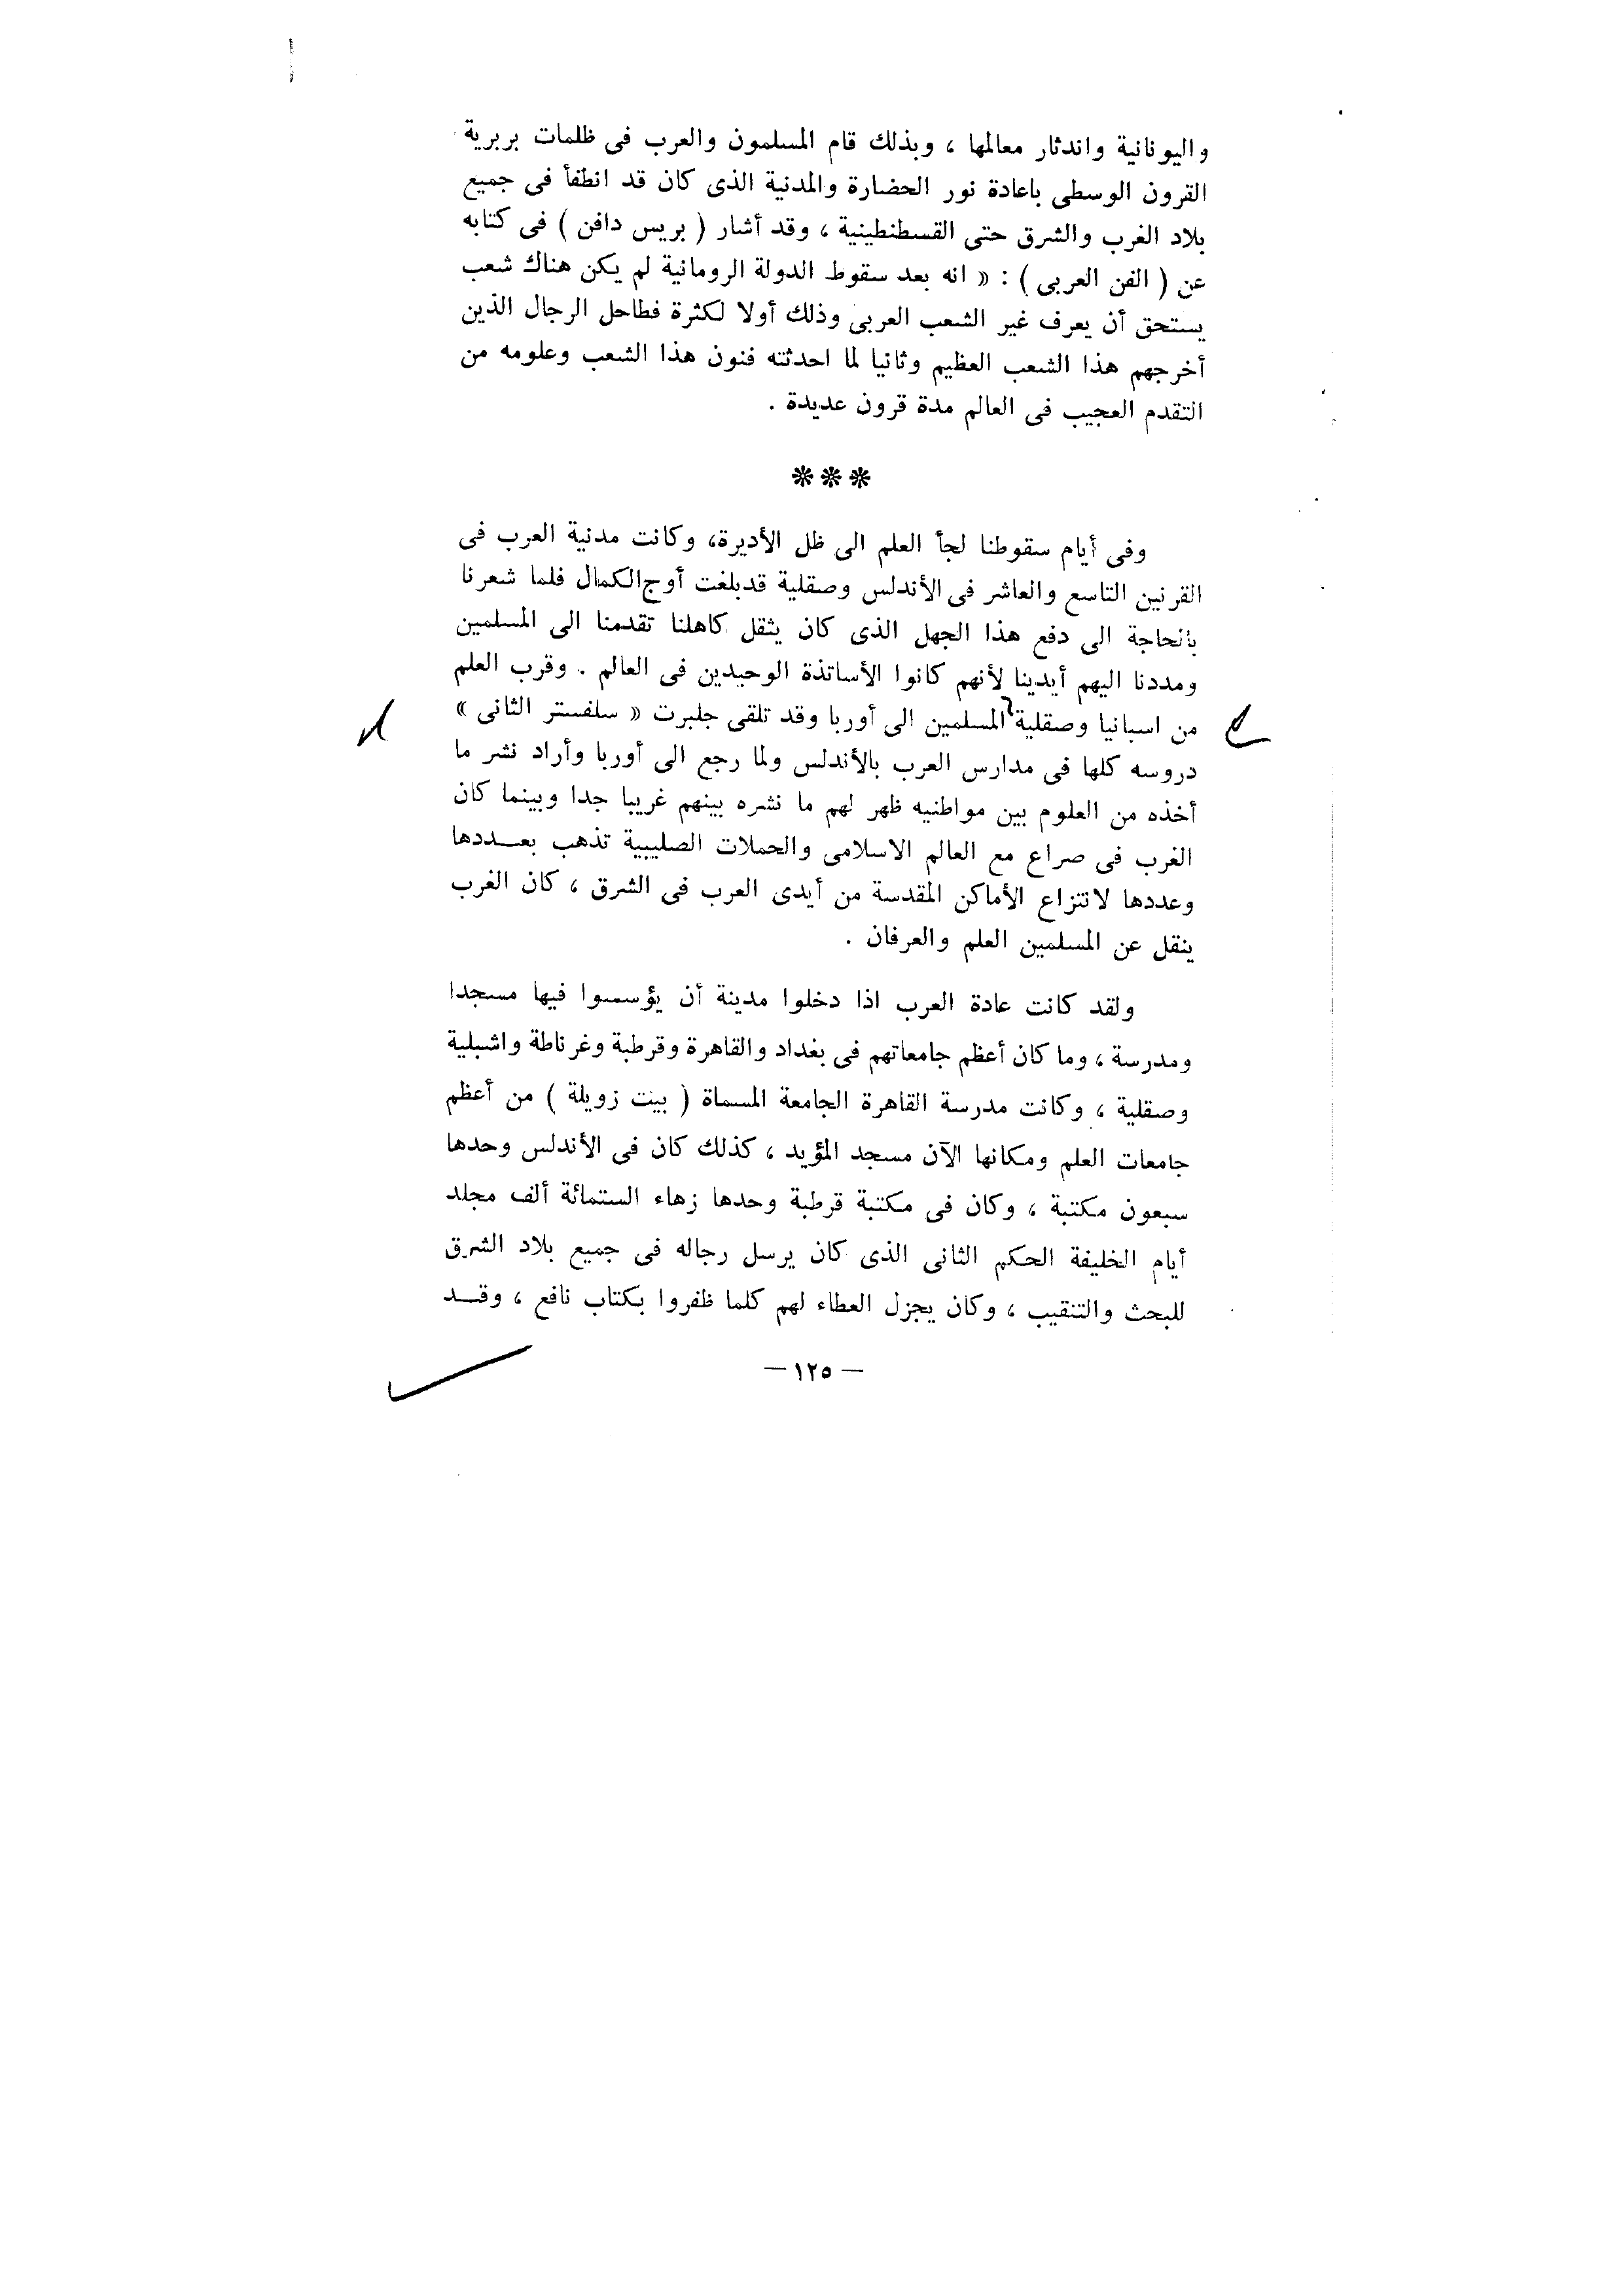 واليونانية واندثار معالمها ، وبذلك قام المسلمون والعرب فى ظلمات بربرية
القرون الوسطى باعادة نور الحضارة والمدنية الذى كان قد انطفأ فى جميع
بلاد الغرب والشرق حتى القسطنطينية ، وقد أشار ( بريس دافن ) فى كتابه
عن ( الفن العربى ) : « انه بعد سقوط الدولة الرومانية لم يكن هناك شعب
يستحق أن يعرف غير الشعب العربى وذلك أولا لكثرة فطاحل الرجال الذين
أخرجهم هذا الشعب العظيم وثانيا لما احدثته فنون هذا الشعب وعلومه من
التقدم العجيب فى العالم مدة قرون عديدة .
***
وفى أيام سقوطنا لجأ العلم الى ظل الأديرة، وكانت مدنية العرب فى
القرنين التاسع والعاشر فى الأندلس وصقلية قد بلغت أوج الكمال فلما شعرنا
بالحاجة الى دفع هذا الجهل الذى كان يثقل كاهلنا تقدمنا الى المسلمين
ومددنا اليهم أيدينا لأنهم كانوا الأساتذة الوحيدين فى العالم . وقرب العلم
من اسبانيا وصقلية المسلمين الى أوربا وقد تلقى جلبرت « سلفستر الثانى »
دروسه كلها فى مدارس العرب بالأندلس ولما رجع الى أوربا وأراد نشر ما
أخذه من العلوم بين مواطنيه ظهر لهم ما نشره بينهم غريبا جدا وبينما كان
الغرب فى صراع مع العالم الاسلامى والحملات الصليبية تذهب بعــددها
وعددها لانتزاع الأماكن المقدسة من أيدى العرب فى الشرق ، كان الغرب
ينقل عن المسلمين العلم والعرفان .
ولقد كانت عادة العرب اذا دخلوا مدينة أن يؤسسوا فيها مسجدا
ومدرسة ، وما كان أعظم جامعاتهم فى بغداد والقاهرة وقرطبة وغرناطة واشبلية
وصقلية ، وكانت مدرسة القاهرة الجامعة المسماة ( بيت زويلة ) من أعظم
جامعات العلم ومكانها الآن مسجد المؤيد ، كذلك كان فى الأندلس وحدها
سبعون مكتبة ، وكان فى مكتبة قرطبة وحدها زهاء الستمائة ألف مجلد
أيام الخليفة الحكم الثانى الذى كان يرسل رجاله فى جميع بلاد الشرق
للبحث والتنقيب ، وكان يجزل العطاء لهم كلما ظفروا بكتاب نافع ، وقــد
— ١٢٥ —